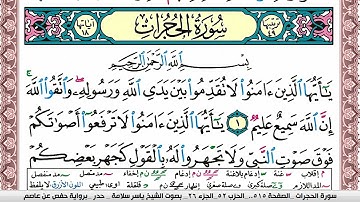 سورة الحجرات
ترتيبها ٤٩
آياتها ١٨
بِسْمِ ٱللَّهِ ٱلرَّحْمَٰنِ ٱلرَّحِيمِ
يَٰٓأَيُّهَا ٱلَّذِينَ ءَامَنُوا۟ لَا تُقَدِّمُوا۟ بَيْنَ يَدَىِ ٱللَّهِ وَرَسُولِهِۦ ۖ وَٱتَّقُوا۟ ٱللَّهَ ۚ
إِنَّ ٱللَّهَ سَمِيعٌ عَلِيمٌ ١ يَٰٓأَيُّهَا ٱلَّذِينَ ءَامَنُوا۟ لَا تَرْفَعُوٓا۟ أَصْوَٰتَكُمْ
فَوْقَ صَوْتِ ٱلنَّبِىِّ وَلَا تَجْهَرُوا۟ لَهُۥ بِٱلْقَوْلِ كَجَهْرِ بَعْضِكُمْ
سورة الحجرات، الصفحة ٥١٥، الحزب ٥٢، الجزء ٢٦ . بصوت الشيخ ياسر سلامة .. حدر . برواية حفص عن عاصم